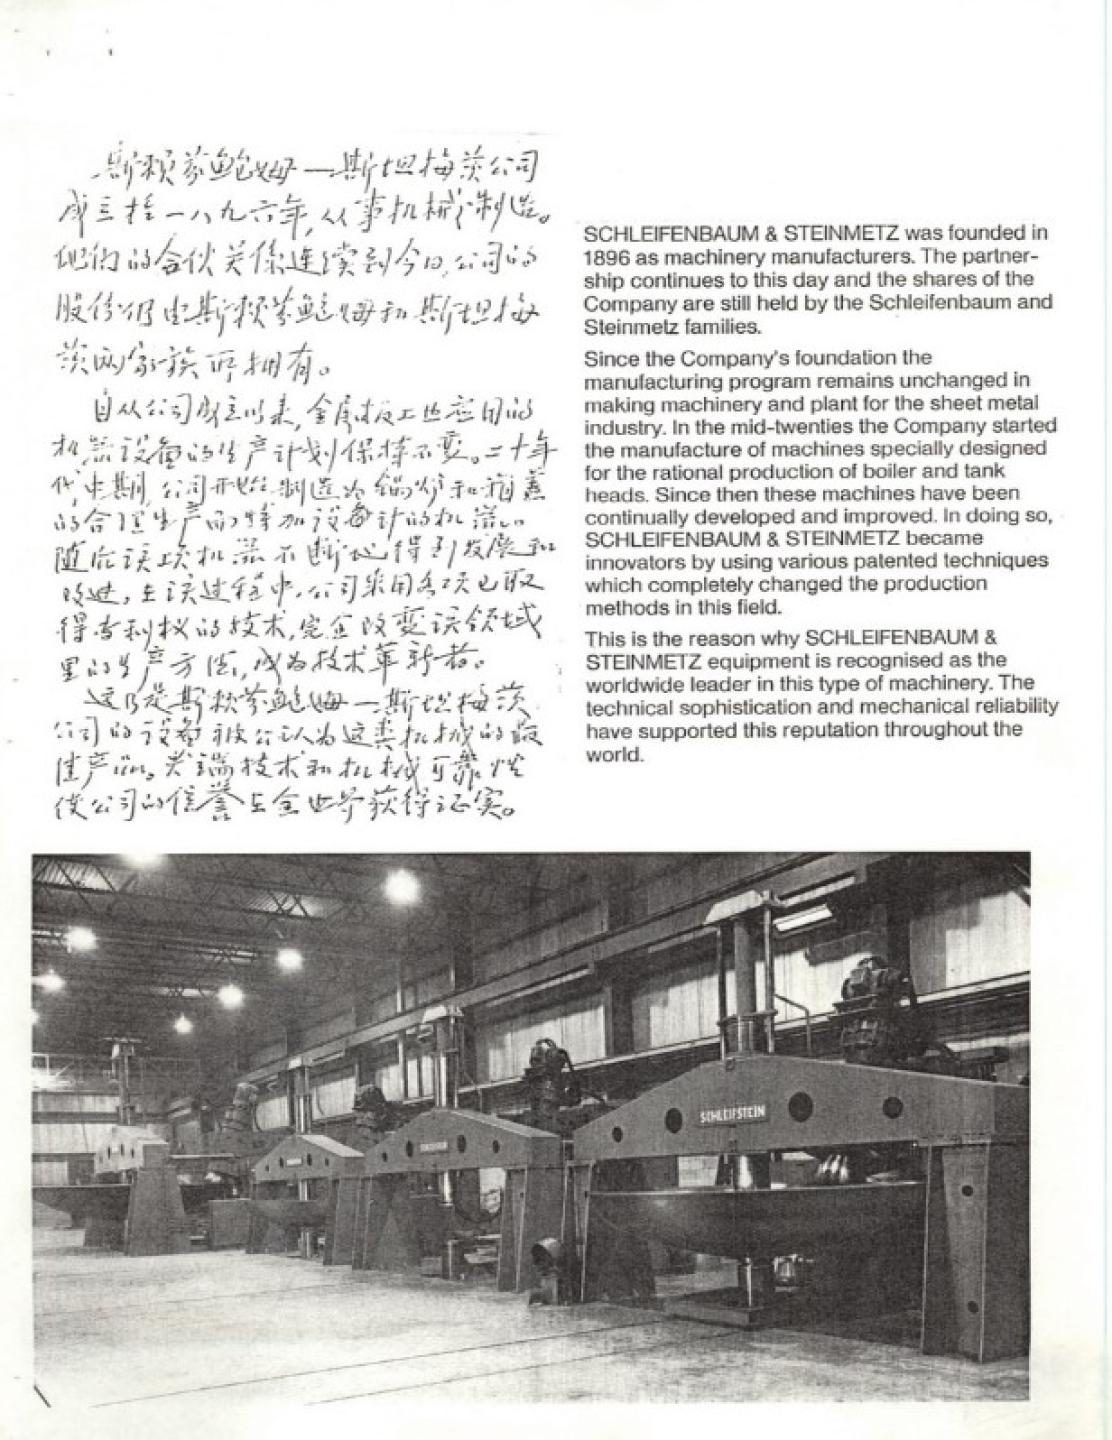 斯赖芬鲍姆—斯坦梅茨公司
成立于一八九六年,从事机械制造。
他们的合伙关係连续到今日,公司的
股份仍由斯赖芬鲍姆和斯坦梅
茨两家族所拥有。
自从公司成立以来,金属板工业应用的
机器设备的生产计划保持不变。二十年
代中期,公司开始制造为锅炉和箱盖
的合理生产而特加设计的机器。
随后该项机器不断地得到发展和
改进,在该过程中,公司采用各项已取
得专利权的技术,完全改变该领域
里的生产方法,成为技术革新者。
这乃是斯赖芬鲍姆—斯坦梅茨
公司的设备被公认为这类机械的最
佳产品。尖端技术和机械可靠性
使公司的信誉在全世界获得证实。
SCHLEIFENBAUM & STEINMETZ was founded in
1896 as machinery manufacturers. The partner-
ship continues to this day and the shares of the
Company are still held by the Schleifenbaum and
Steinmetz families.
Since the Company's foundation the
manufacturing program remains unchanged in
making machinery and plant for the sheet metal
industry. In the mid-twenties the Company started
the manufacture of machines specially designed
for the rational production of boiler and tank
heads. Since then these machines have been
continually developed and improved. In doing so,
SCHLEIFENBAUM & STEINMETZ became
innovators by using various patented techniques
which completely changed the production
methods in this field.
This is the reason why SCHLEIFENBAUM &
STEINMETZ equipment is recognised as the
worldwide leader in this type of machinery. The
technical sophistication and mechanical reliability
have supported this reputation throughout the
world.
SCHLEIFSTEIN